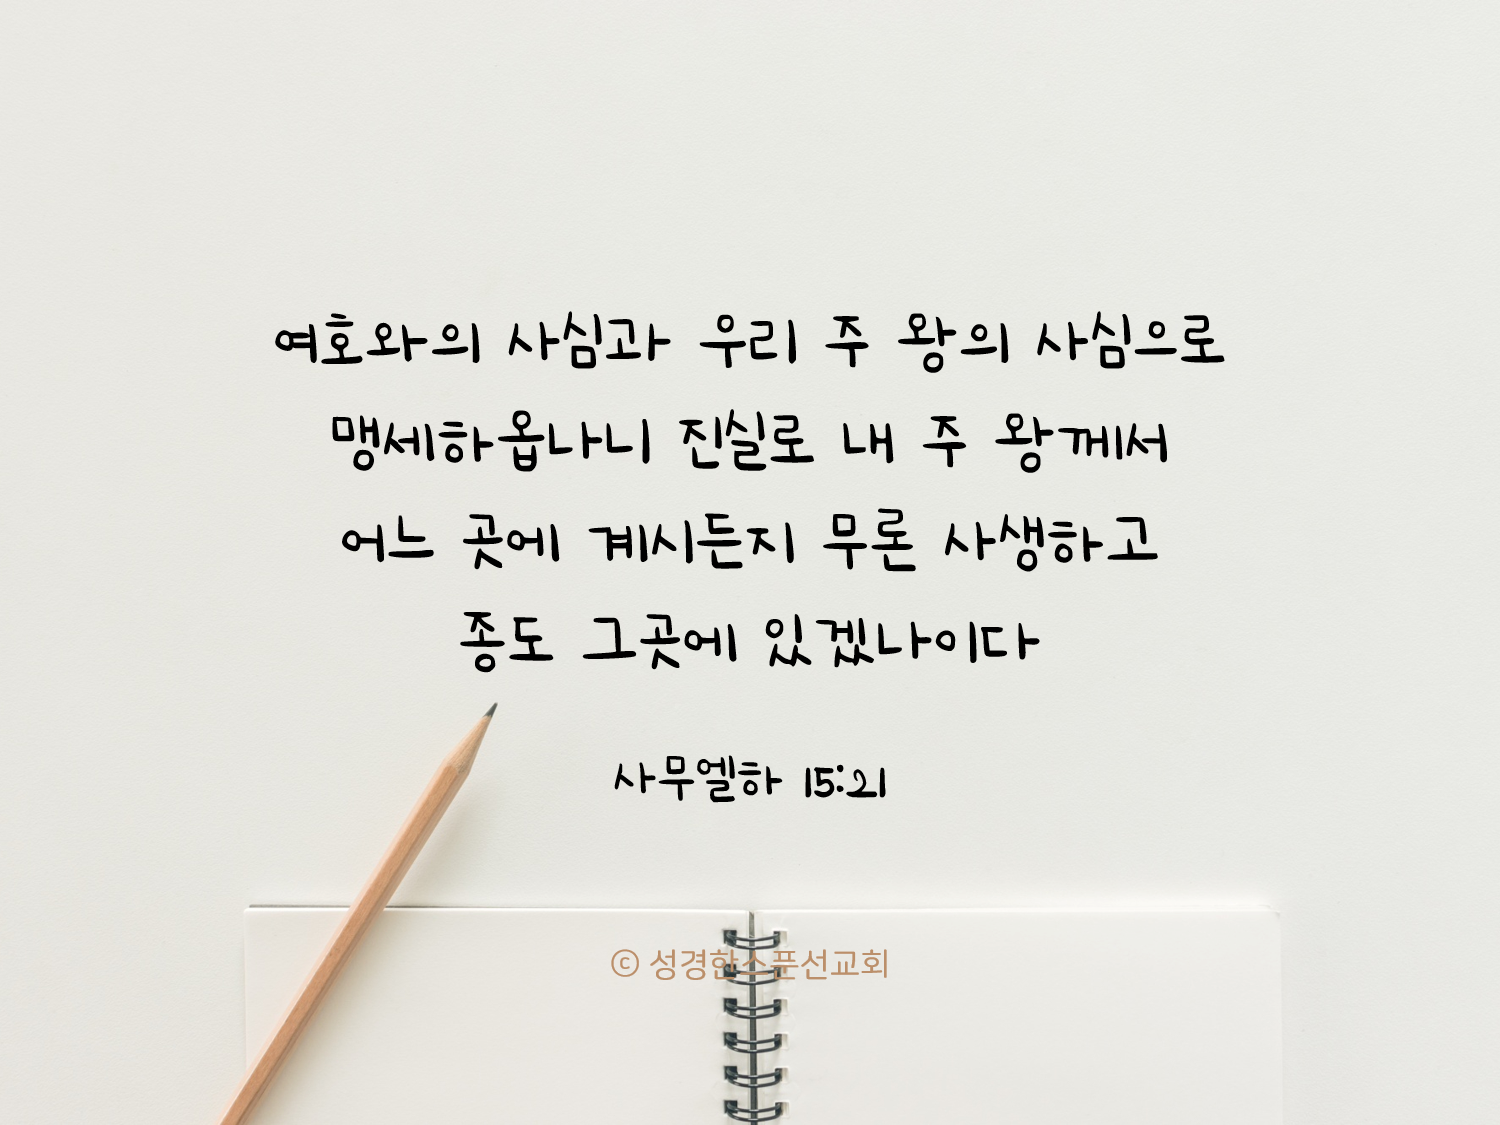 여호와의 사심과 우리 주 왕의 사심으로
맹세하옵나니 진실로 내 주 왕께서
어느 곳에 계시든지 무론 사생하고
종도 그곳에 있겠나이다
사무엘하 15:21
ⓒ 성경한스푼선교회